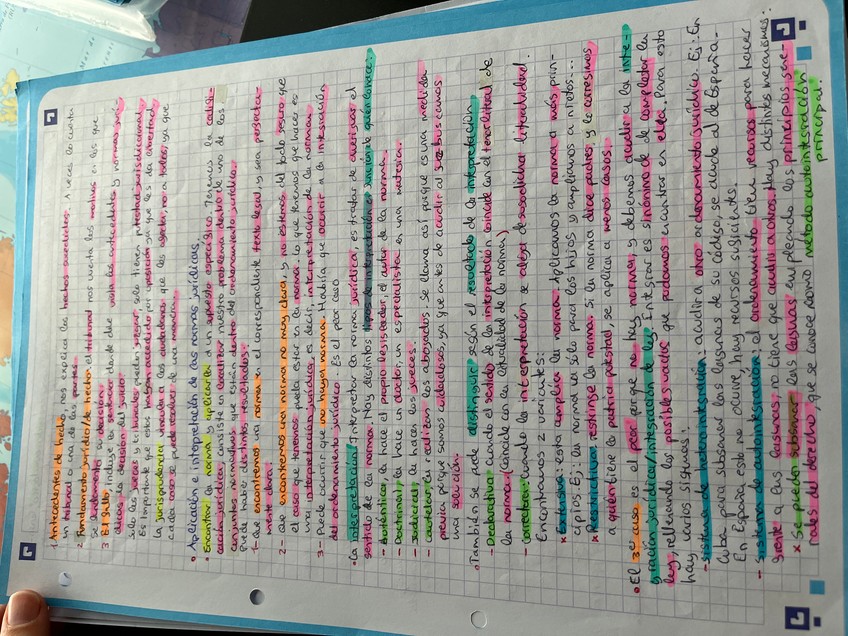 1. Antecedentes de hecho, nos explica los hechos sucedidos. A veces lo cuenta
un tribunal o una de las partes.
2. Fundamento jurídico/de hecho, el tribunal nos cuenta los motivos en los que
se fundamenta su decisión.
3. El fallo, incluye la sentencia donde dice vista los antecedentes y normas jurí-
dicas, la decisión del juicio.
Solo los jueces y tribunales pueden juzgar, solo tienen potestad jurisdiccional.
Es importante que estos hayan accedido por oposición ya que les da libertad
La jurisprudencia vincula a los ciudadanos que les afecta, no a todos, ya que
cada caso se puede resolver de una manera.
• Aplicación e interpretación de las normas jurídicas.
• Encontrar la norma y aplicarla a un supuesto específico. Tenemos la califi-
cación jurídica, consiste en localizar nuestro problema dentro de uno de los
conjuntos normativos que están dentro del ordenamiento jurídico.
Puede haber distintos resultados:
1- Que encontremos una norma en el correspondiente texto legal, y sea perfecta-
mente claro.
2- Que encontremos una norma no muy clara, y no estemos del todo seguro que
el caso que tenemos pueda estar en la norma. Lo que tenemos que hacer es
una interpretación jurídica, es decir, interpretación de las normas.
3- Puede ocurrir que no haya norma. Habría que acurrir a la integración
del ordenamiento jurídico. Es el peor caso
• La interpretación: Interpretar la norma jurídica es tratar de averiguar el
sentido de la norma. Hay distintos tipos de interpretación en función de quien la hace:
- Auténtica, la hace el propio legislador, el autor de la norma.
- Doctrinal, la hace un doctor, un especialista en una materia.
- Judicial, la hacen los jueces.
- Cautelar, la realizan los abogados. Se llama así porque es una medida
previa porque somos cuidadosos, ya que antes de acudir al buscamos
una solución.
• También se puede distinguir según el resultado de la interpretación
- Declarativa, cuando el sentido de la interpretación coincide con el tenor literal de
la norma. (Coincide con la literalidad de la norma)
- Correctora, cuando la interpretación se aleja de su sentido literalidad.
Encontramos 2 variantes:
* Extensiva: esta amplía la norma. Aplicamos la norma a más prin-
cipios. Ej: la norma va sólo para los hijos y ampliamos a nietos...
* Restrictiva: restringe la norma. Si la norma dice padres y le ceñimos
a quien tiene la patria potestad, se aplica a menos casos.
• El 3er caso es el peor porque no hay norma, y debemos acudir a la inte-
gración jurídica/integración de ley. Integrar es sinónimo de completar la
ley, rellenando los posibles vacíos que podamos encontrar en ella. Para esto
hay varios sistemas:
- Sistema de heterointegración: acudir a otro ordenamiento jurídico. Ej: En
Cuba para subsanar las lagunas de su código, se acude al de España.
En España esto no ocurre, hay recursos suficientes.
- Sistema de autointegración: el ordenamiento tiene recursos para hacer
frente a las lagunas, no tiene que acudir a otros. Hay distintos mecanismos:
* Se pueden subsanar las lagunas empleando los principios gene-
rales del derecho, que se conoce como método autointegración
principal.